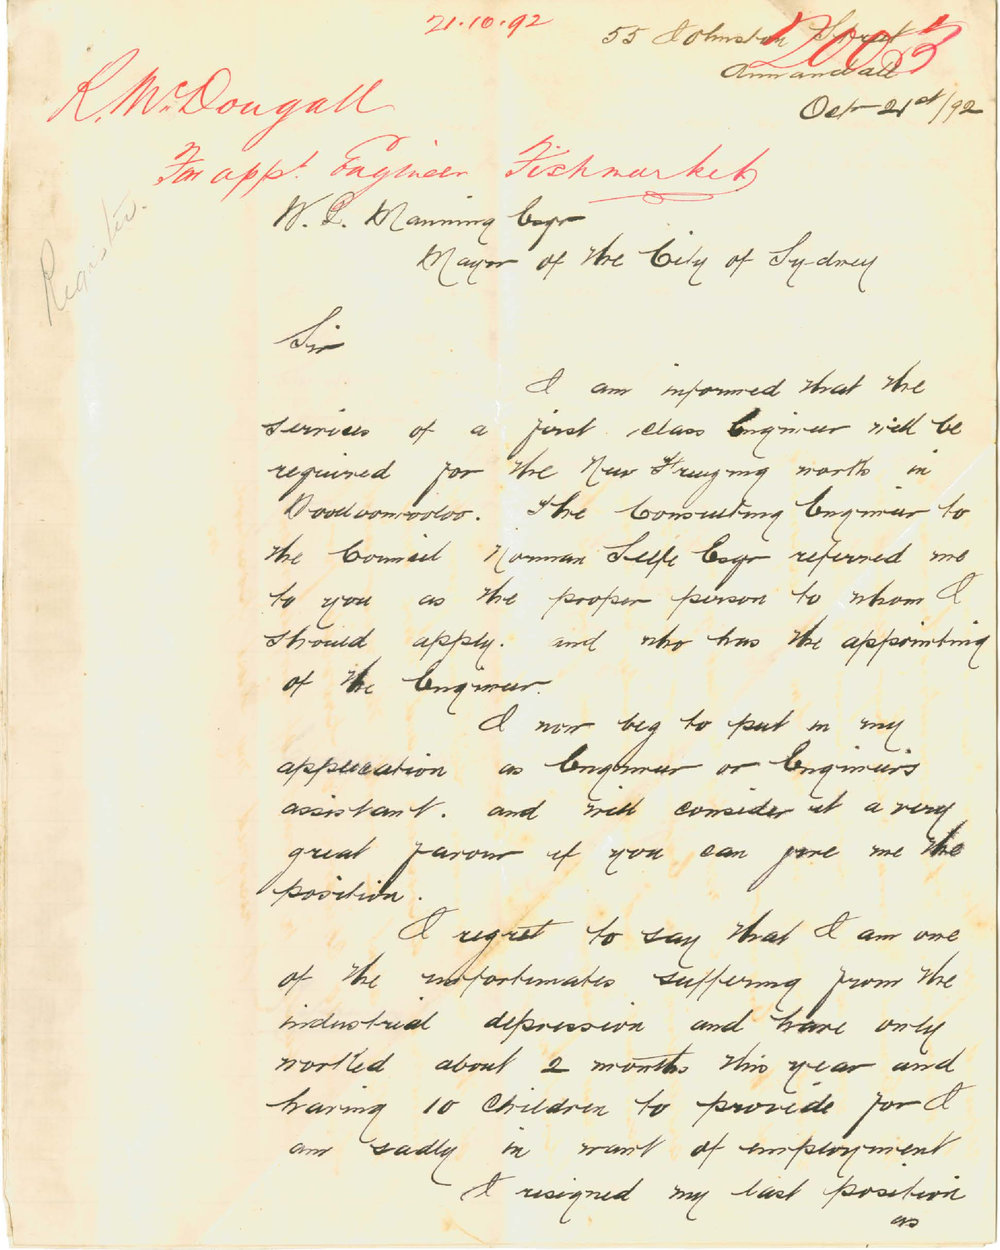 21.10.92
55 Johnston Street
Annandale
Oct 21st/92
R. McDougall
For appt. Engineer Fishmarket
Register.
W. P. Manning Esqr
Mayor of the City of Sydney
Sir
I am informed that the
services of a first class Engineer will be
required for the New Freezing works in
Woolloomooloo. The Consulting Engineer to
the Council Norman Selfe Esqr referred me
to you as the proper person to whom I
should apply. and who has the appointing
of the Engineer.
I now beg to put in my
application as Engineer or Engineers
assistant. and will consider it a very
great favour if you can give me the
position.
I regret to say that I am one
of the unfortunates suffering from the
industrial depression and have only
worked about 2 months this year and
having 10 children to provide for I
am sadly in want of employment
I resigned my last position
as